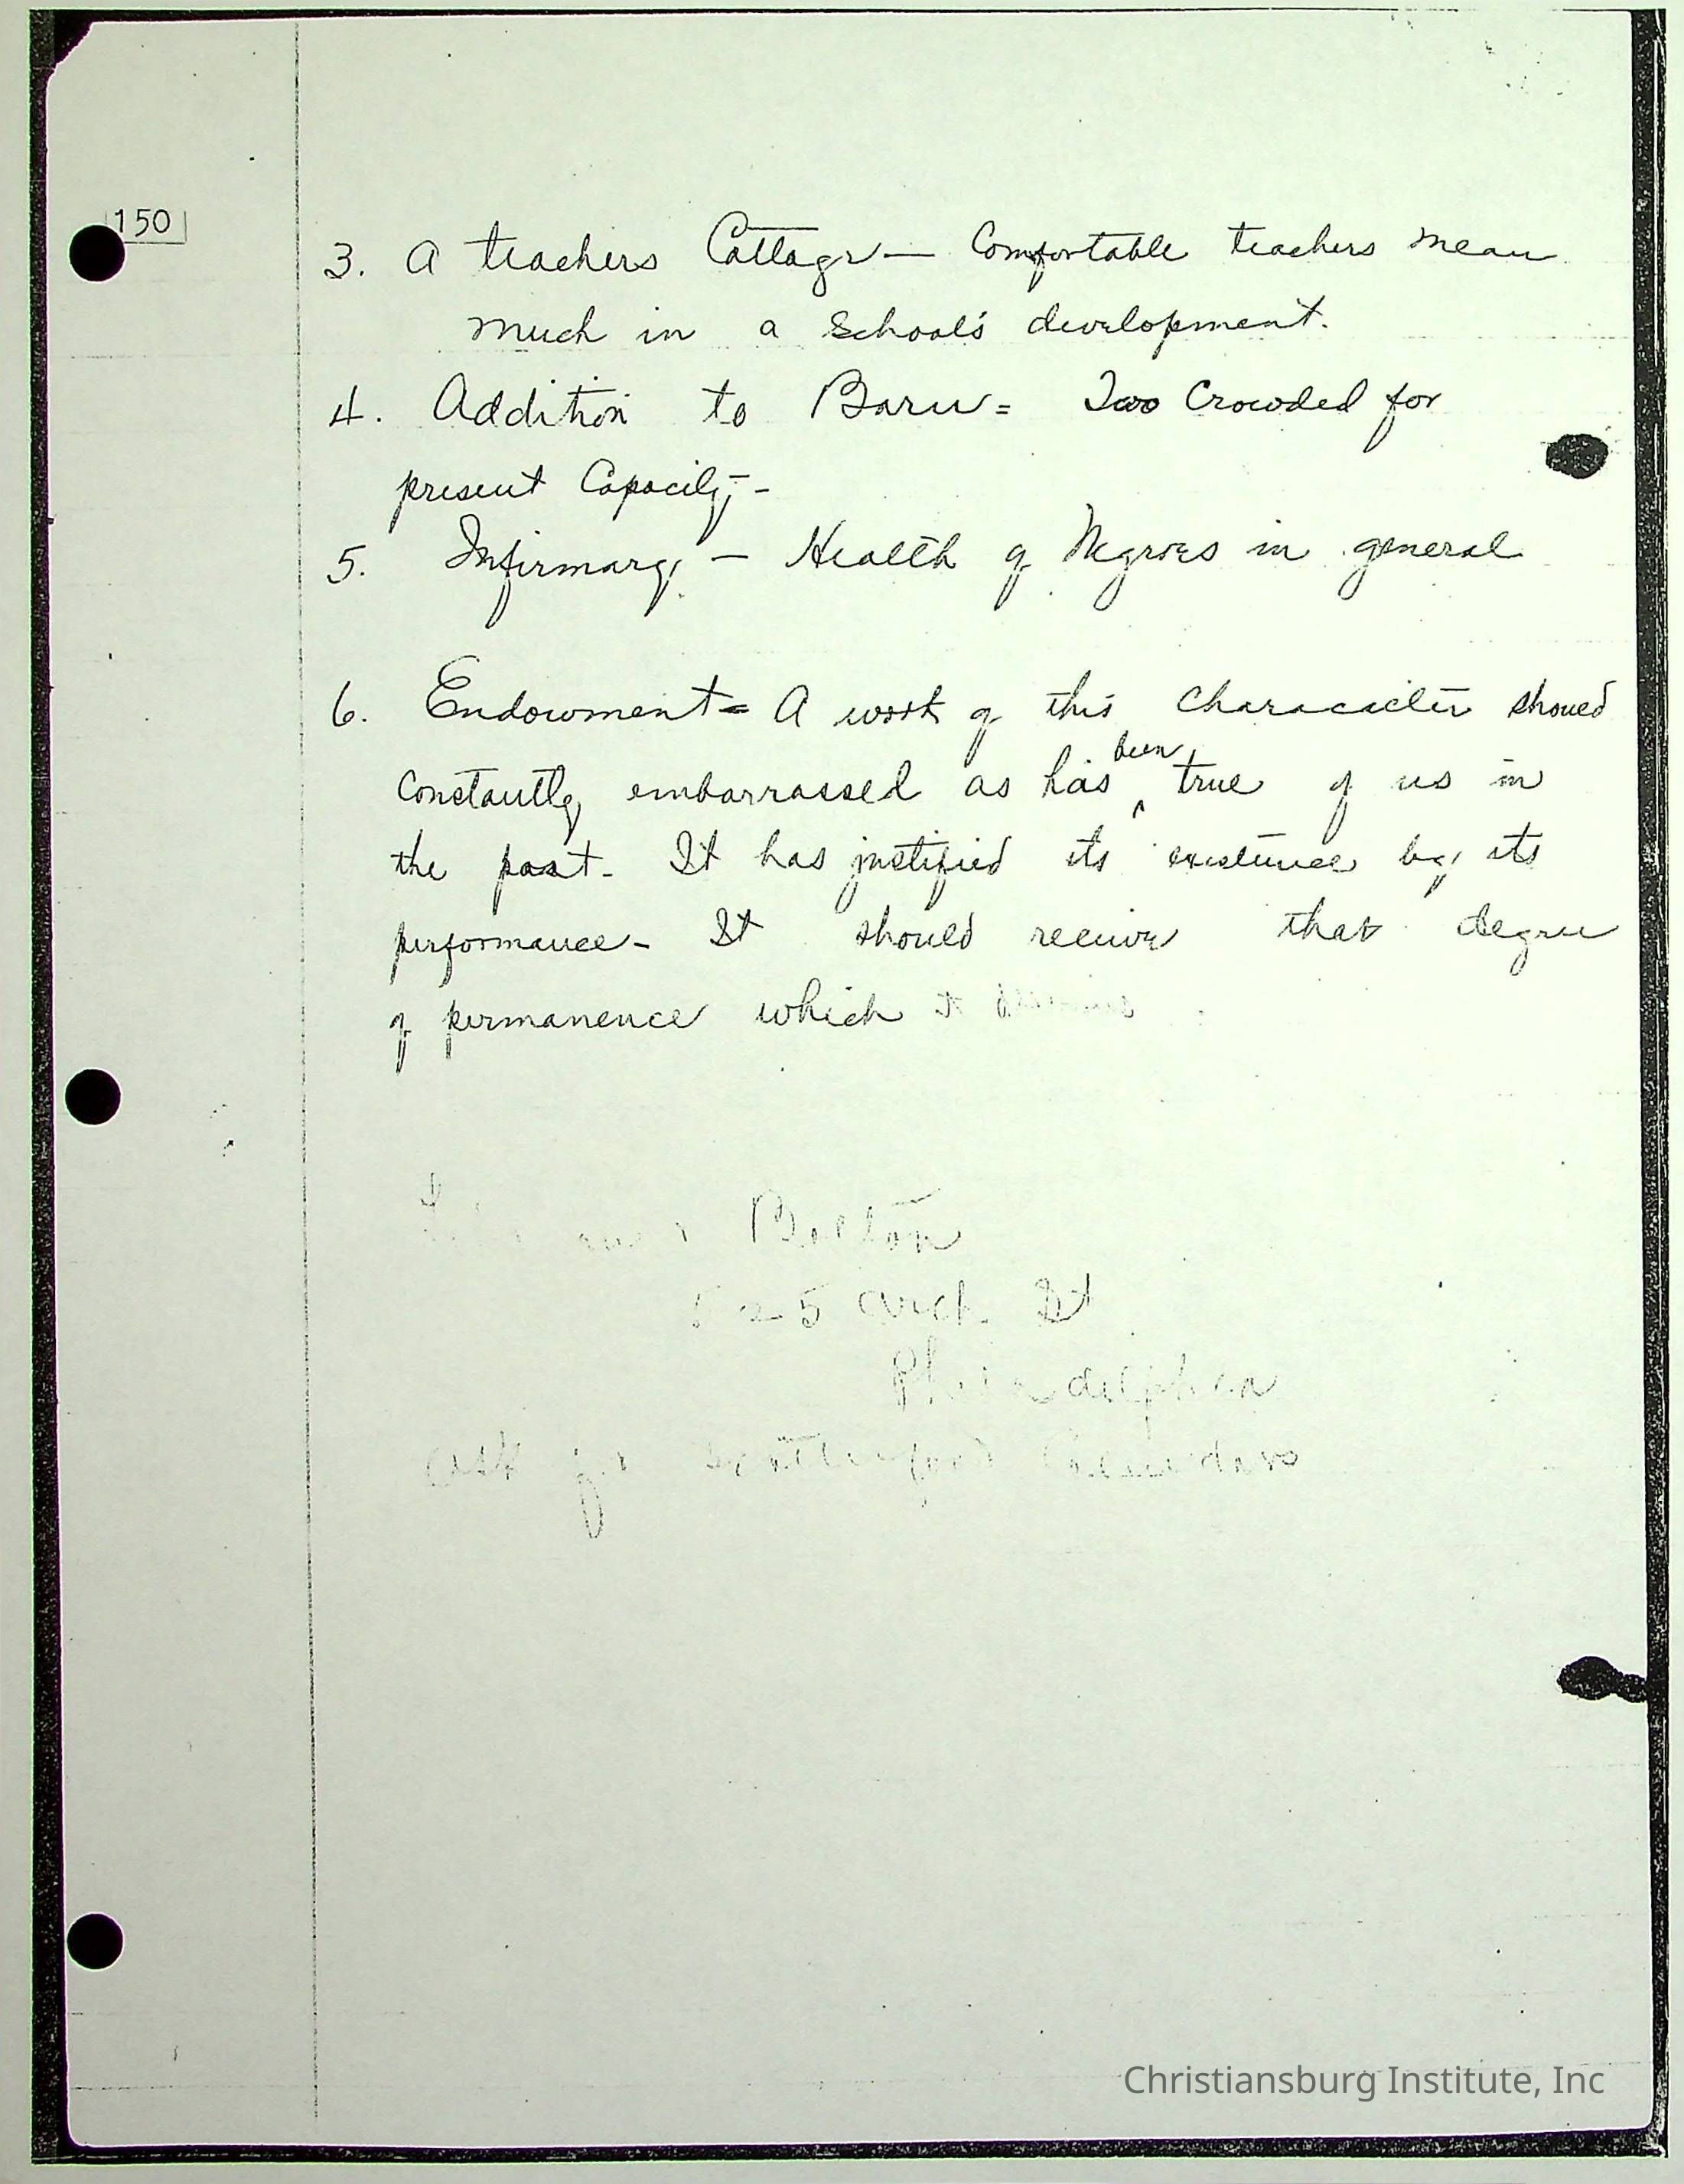 150
3. A teachers Cottage — Comfortable teachers mean
much in a School's development.
4. Addition to Barn = Too Crowded for
present Capacity -
5. Infirmary, — Health of Negroes in general
6. Endowment = A work of this Characacter should
constantly embarrassed as has been true of us in
the past. It has justified its existence by its
performance - It should receive that degree
of permanence which it
Belton
5 Arch St
Philadelphia
Ask for
Christiansburg Institute, Inc